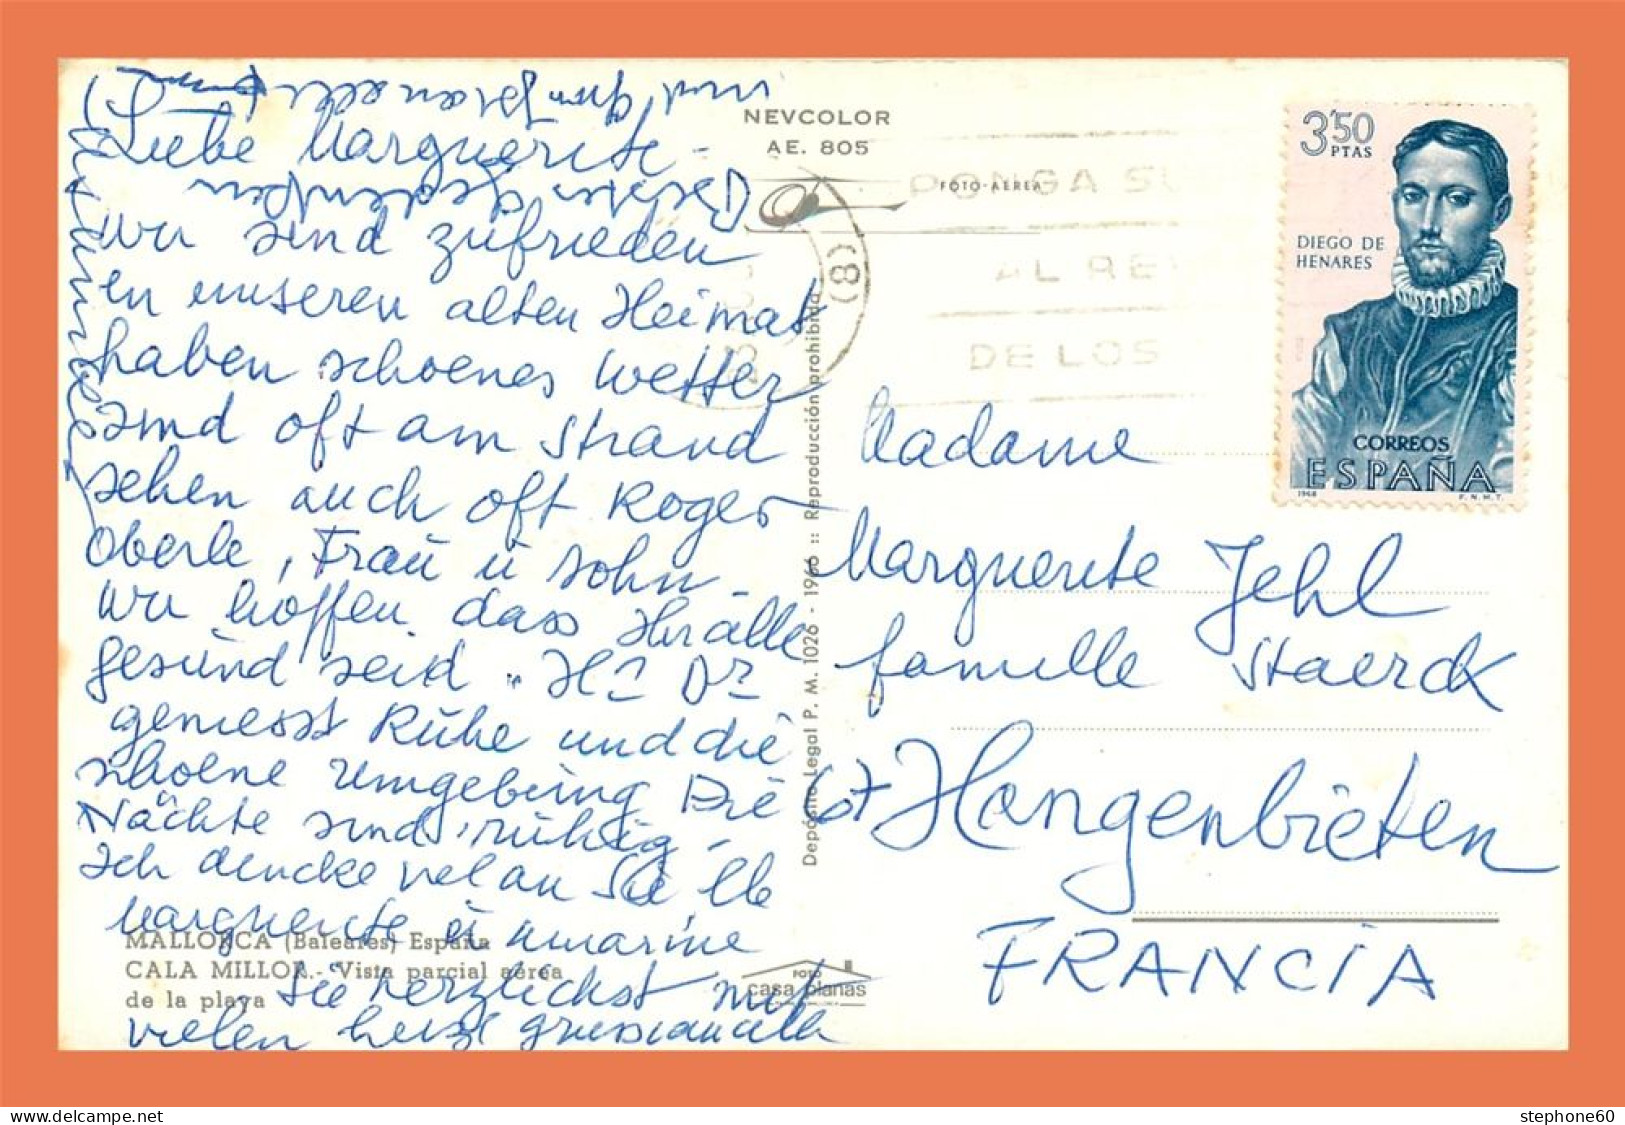 Liebe Marguerite -
wir sind zufrieden
in unseren alten Heimat
haben schoenes Wetter
sind oft am Strand
sehen auch oft Roger
Oberle, Frau ü Sohn -
Wir hoffen dass Ihr alle
gesund seid. Hr Dr
geniesst Rühe und die
schoene Umgebüng Die
Nächte sind rühig -
Ich dencke viel an Sie lb
Marguerite ü
Sie herzlichst mit
vielen herzl
und
NEVCOLOR
AE. 805
FOTO-AEREA
PONGA SU
AL RE
DE LOS
(8)
3'50
PTAS
DIEGO DE
HENARES
CORREOS
ESPAÑA
1968 F.N.M.T.
Depósito Legal P. M. 1026 - 1966 :: Reproducción prohibida
Madame
Marguerite Jehl
famille Staerck
67 Hangenbieten
FRANCIA
MALLORCA (Baleares) España
CALA MILLOR.- Vista parcial aérea
de la playa
FOTO
casa planas
stephone60